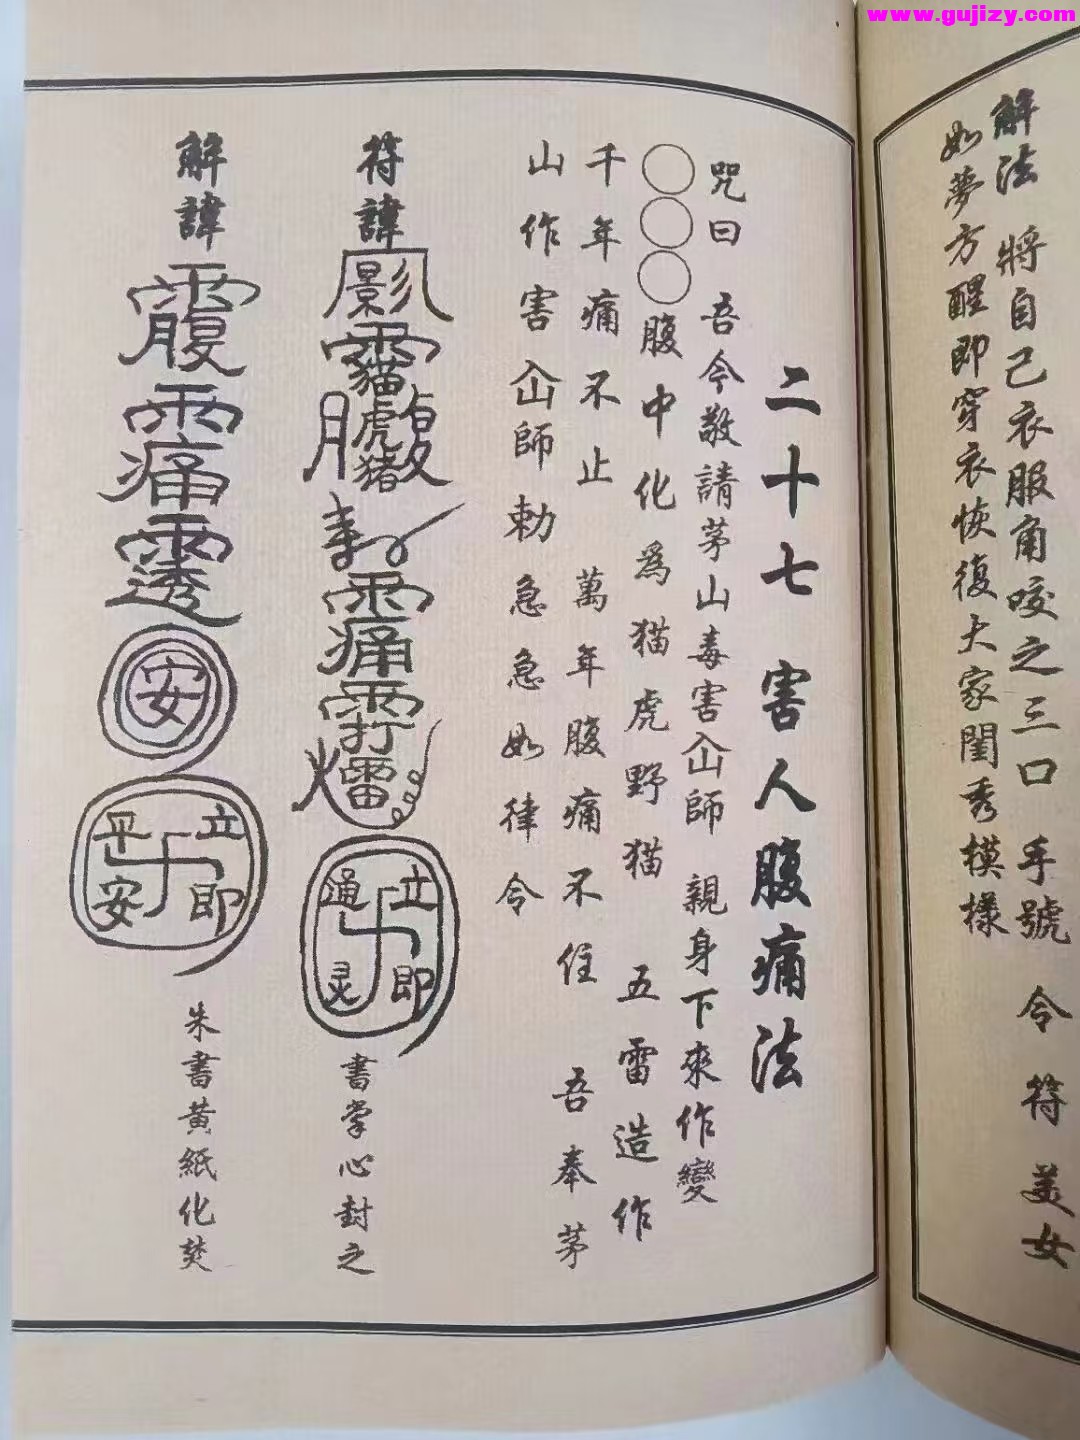 www.gujizy.com
解法 將自己衣服角咬之三口 手號 令 符 美女
如夢方醒即穿衣恢復大家閨秀模樣
二十七 害人腹痛法
咒曰 吾今敬請茅山毒害仚師 親身下來作變
○○○腹中化為猫虎野猫 五雷造作
千年痛不止 萬年腹痛不住 吾奉茅
山作害仚師勅急急如律令
符諱
影
猫虎豬
痛
打
雷
立即
通灵
書掌心封之
解諱
腹
痛
透
安
立即
平安
朱書黃紙化焚